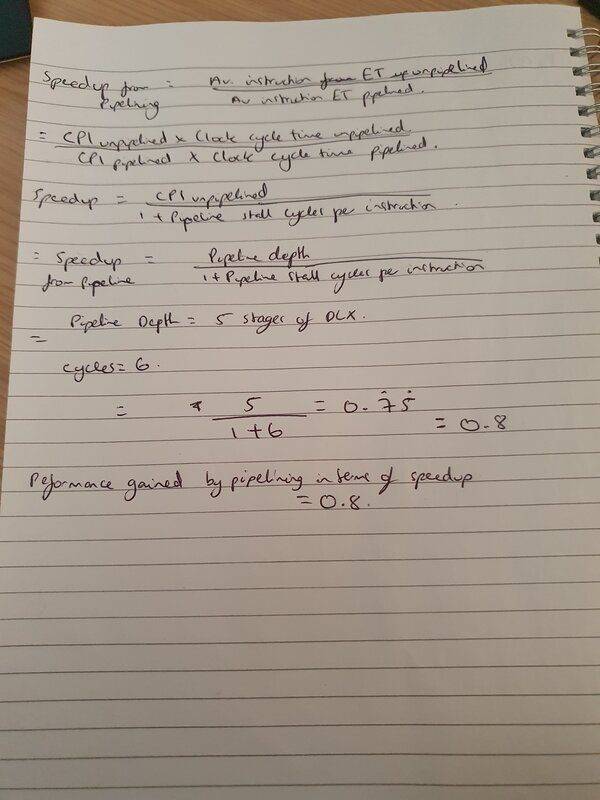 Speedup from Pipelining = Av. instruction ET unpipelined
Av instruction ET pipelined.
= CPI unpipelined x Clock cycle time unpipelined
CPI pipelined X Clock cycle time pipelined.
Speedup = CPI unpipelined
1 + Pipeline stall cycles per instruction.
= Speedup from pipeline = Pipeline depth
1 + Pipeline stall cycles per instruction
Pipeline Depth = 5 stages of DLX.
=
cycles = 6.
= 5 = 0.75
1 + 6
= 0.8
Peformance gained by pipelining in terms of speedup
= 0.8.